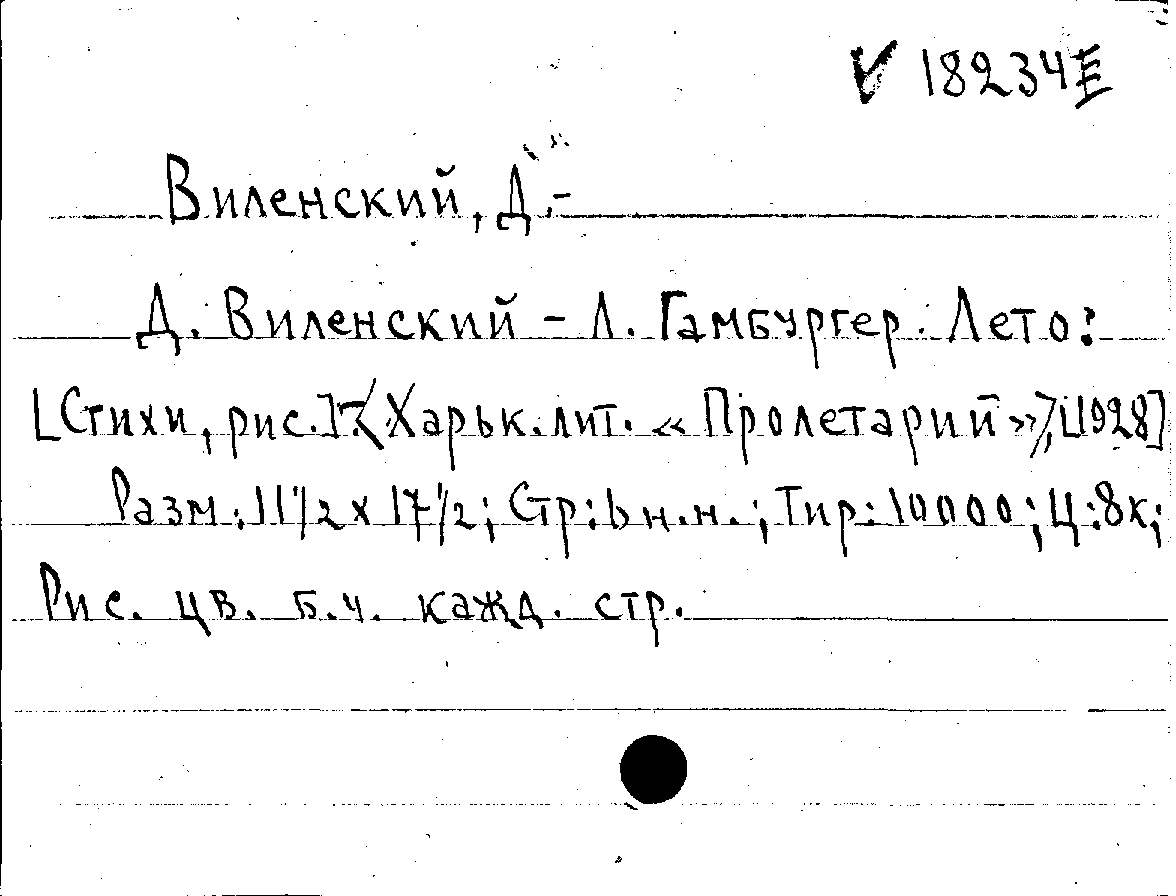 √ 18234 Ⅲ
Виленский, Д.-
Д. Виленский - Л. Гамбургер. Лето:
[Стихи, рис.] Харьк. лит. «Пролетарий», [1928]
Разм: 11 1/2 x 17 1/2; Стр: 6 н.н.; Тир: 10000; Ц: 8к;
Рис. цв. б.ч. кажд. стр.